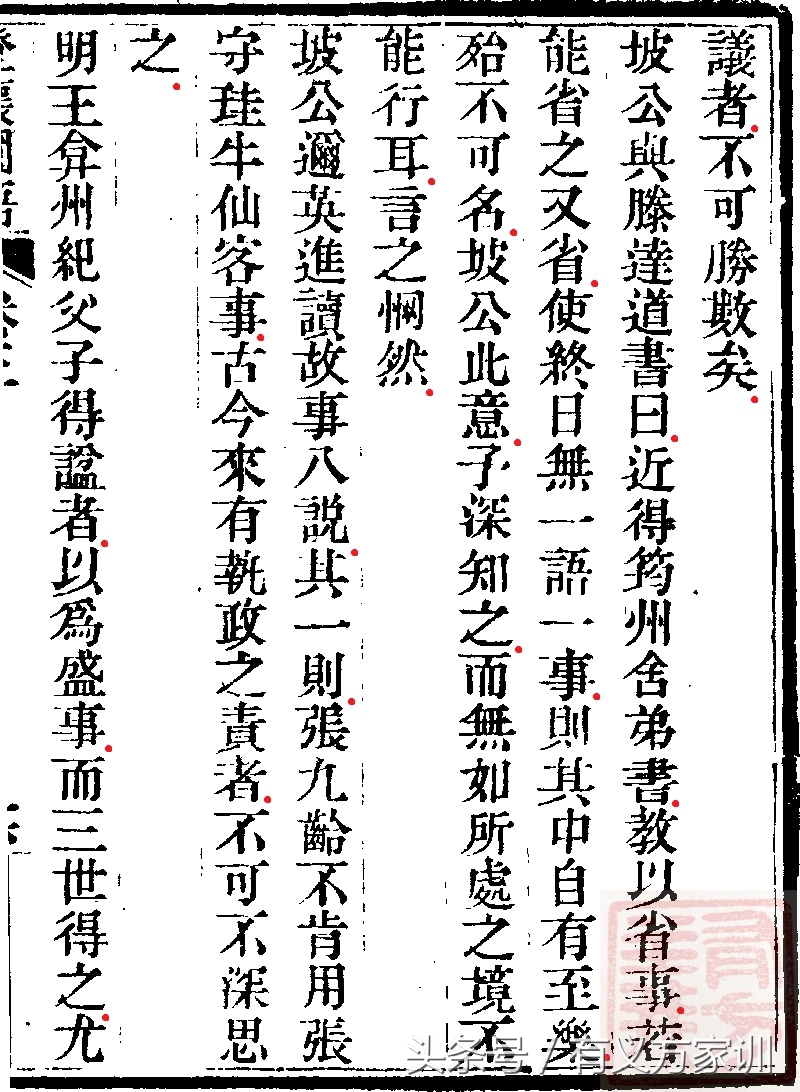 議者不可勝數矣
坡公與滕達道書曰近得筠州舍弟書教以省事若
能省之又省使終日無一語一事則其中自有至樂
殆不可名坡公此意子深知之而無如所處之境不
能行耳言之惘然
坡公邇英進讀故事八說其一則張九齡不肯用張
守珪牛仙客事古今來有執政之責者不可不深思
之
明王弇州紀父子得諡者以為盛事而三世得之尤
澄懷園語
头条号 / 有义方家训